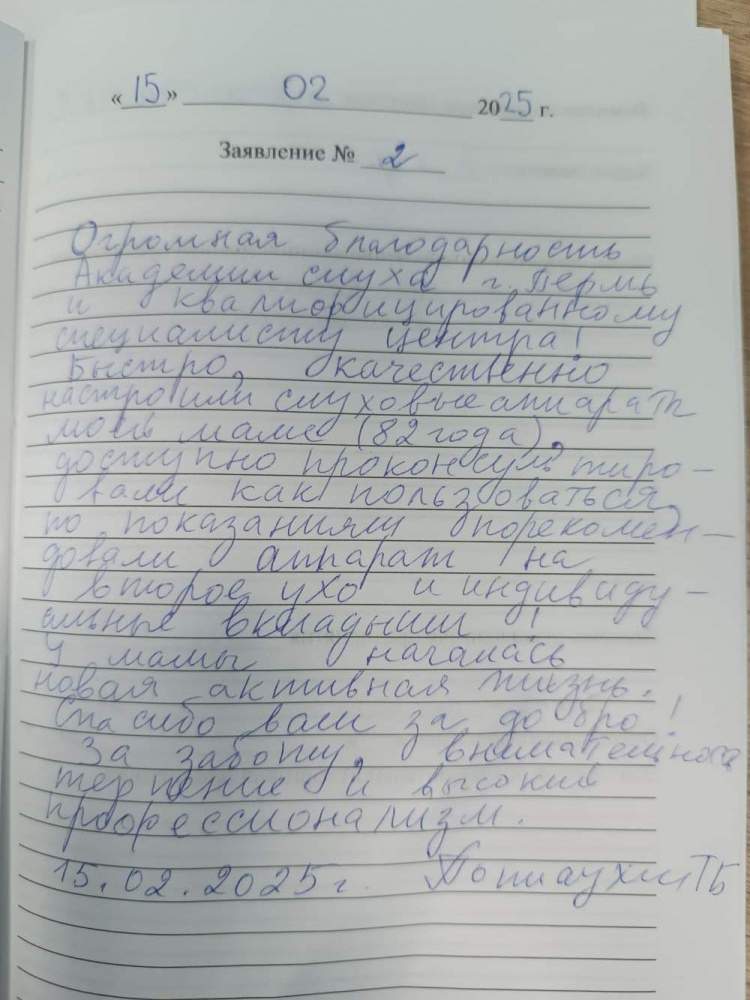 «15» 02 2025 г.
Заявление № 2
Огромная благодарность
Академии слуха г. Пермь
и квалифицированному
специалисту центра!
Быстро, качественно
настроили слуховые аппарат
моей маме (82 года),
доступно проконсультиро-
вали как пользоваться,
по показаниям порекомен-
довали аппарат на
второе ухо и индивиду-
альные вкладыши!
У мамы началась
новая активная жизнь.
Спасибо вам за добро!
За заботу, внимательность
терпение и высокий
профессионализм.
15.02.2025 г.